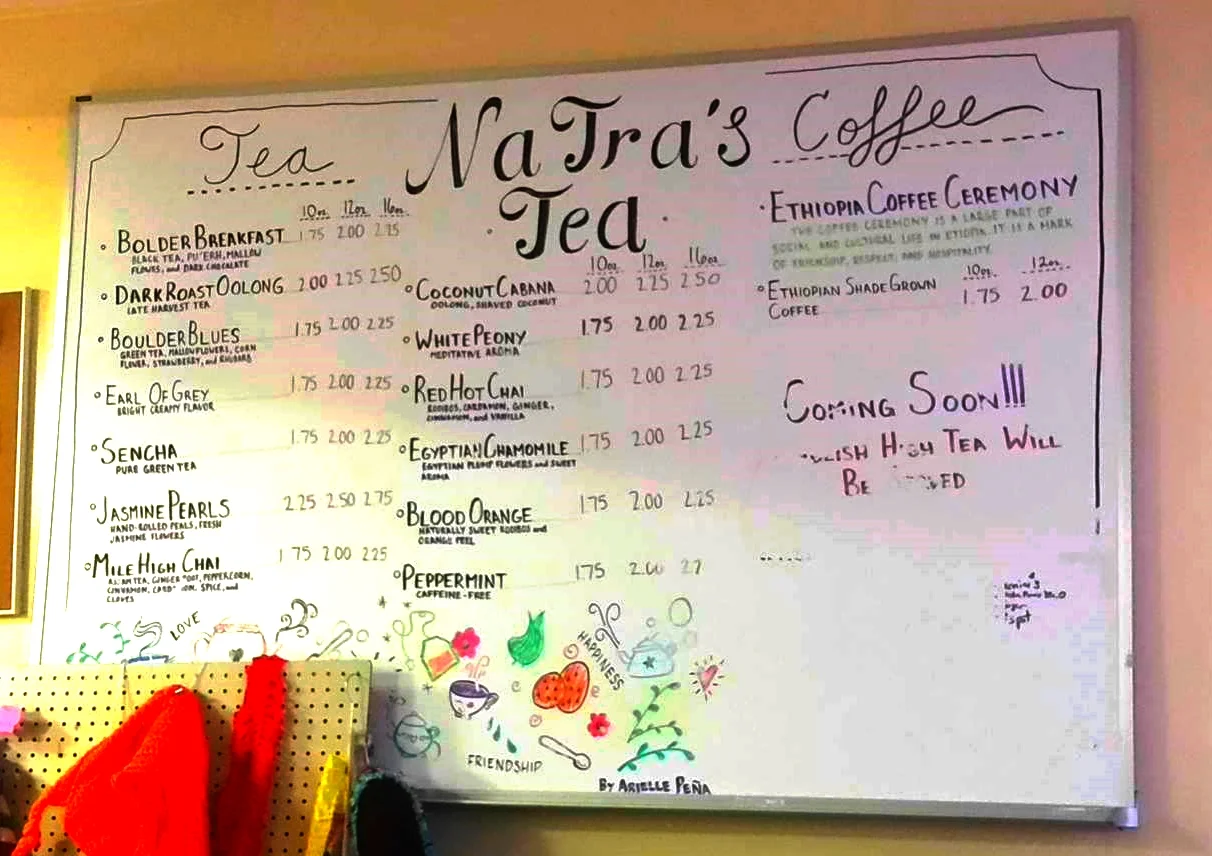 Tea
NaTra's
Tea
Coffee
10oz 12oz 16oz
BOLDER BREAKFAST 1.75 2.00 2.25
BLACK TEA, PU'ERH, MALLOW
FLOWERS, and DARK CHOCOLATE
DARK ROAST OOLONG 2.00 2.25 2.50
LATE HARVEST TEA
BOULDER BLUES 1.75 2.00 2.25
GREEN TEA, MALLOW FLOWERS, CORN
FLOWER, STRAWBERRY, and RHUBARB
EARL OF GREY 1.75 2.00 2.25
BRIGHT CREAMY FLAVOR
SENCHA 1.75 2.00 2.25
PURE GREEN TEA
JASMINE PEARLS 2.25 2.50 2.75
HAND-ROLLED PEALS, FRESH
JASMINE FLOWERS
MILE HIGH CHAI 1.75 2.00 2.25
TEA, GINGER PEPPERCORN,
CINNAMON, SPICE, and
CLOVES
10oz 12oz 16oz
COCONUT CABANA 2.00 2.25 2.50
OOLONG, SHAVED COCONUT
WHITE PEONY 1.75 2.00 2.25
MEDITATIVE AROMA
RED HOT CHAI 1.75 2.00 2.25
ROOIBOS, CARDAMON, GINGER,
CINNAMON, and VANILLA
EGYPTIAN CHAMOMILE 1.75 2.00 2.25
EGYPTIAN PLUMP FLOWERS and SWEET
AROMA
BLOOD ORANGE 1.75 2.00 2.25
NATURALLY SWEET ROOIBOS and
ORANGE PEEL
PEPPERMINT 1.75 2.00
CAFFEINE-FREE
ETHIOPIA COFFEE CEREMONY
THE COFFEE CEREMONY IS A LARGE PART OF
SOCIAL AND CULTURAL LIFE IN ETIOPIA. IT IS A MARK
OF FRIENDSHIP, RESPECT, AND HOSPITALITY.
10oz 12oz
ETHIOPIAN SHADE GROWN 1.75 2.00
COFFEE
COMING SOON!!!
TEA WILL
BE
LOVE
HAPPINESS
FRIENDSHIP
BY ARIELLE PEÑA